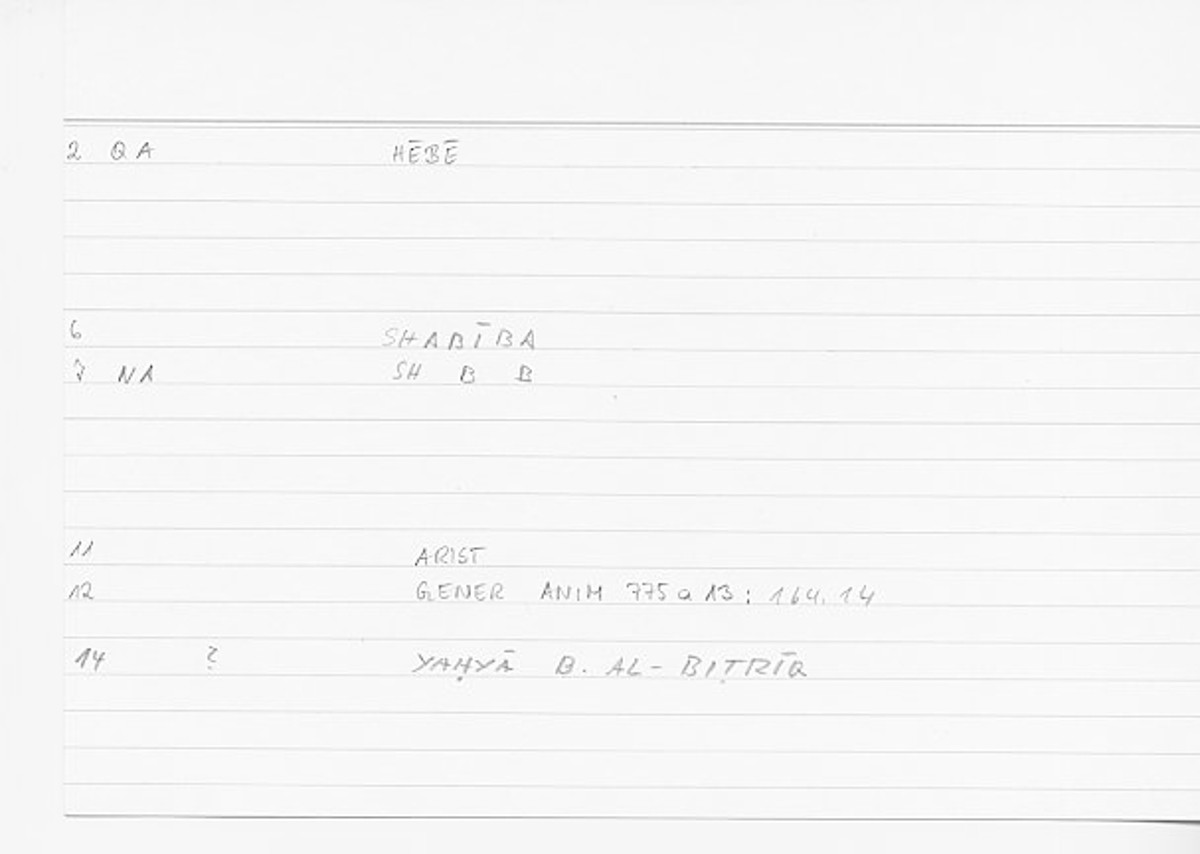 2 QA HĒBĒ
6 SHABĪBA
7 NA SH B B
11 ARIST
12 GENER ANIM 775a 13 : 164.14
14 ? YAḤYĀ B. AL-BIṬRĪQ